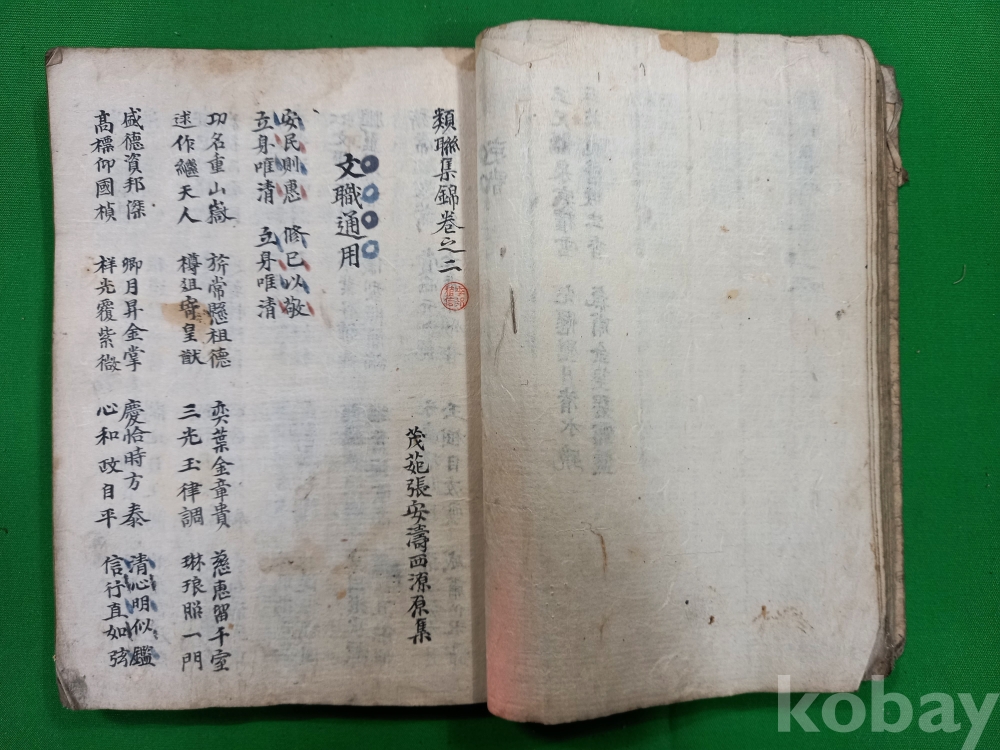 類聯集錦卷之二
茂苑張安濤西源原集
文職通用
安民則惠 修已以敬
立身唯清 立身唯清
功名重山嶽 旂常懸祖德 奕葉金章貴 慈惠留千室
述作繼天人 樽俎寄皇猷 三光玉律調 琳琅照一門
盛德資邦傑 卿月昇金掌 慶恰時方泰 清心明似鑑
高標仰國楨 祥光覆紫微 心和政自平 信行直如弦
kobay